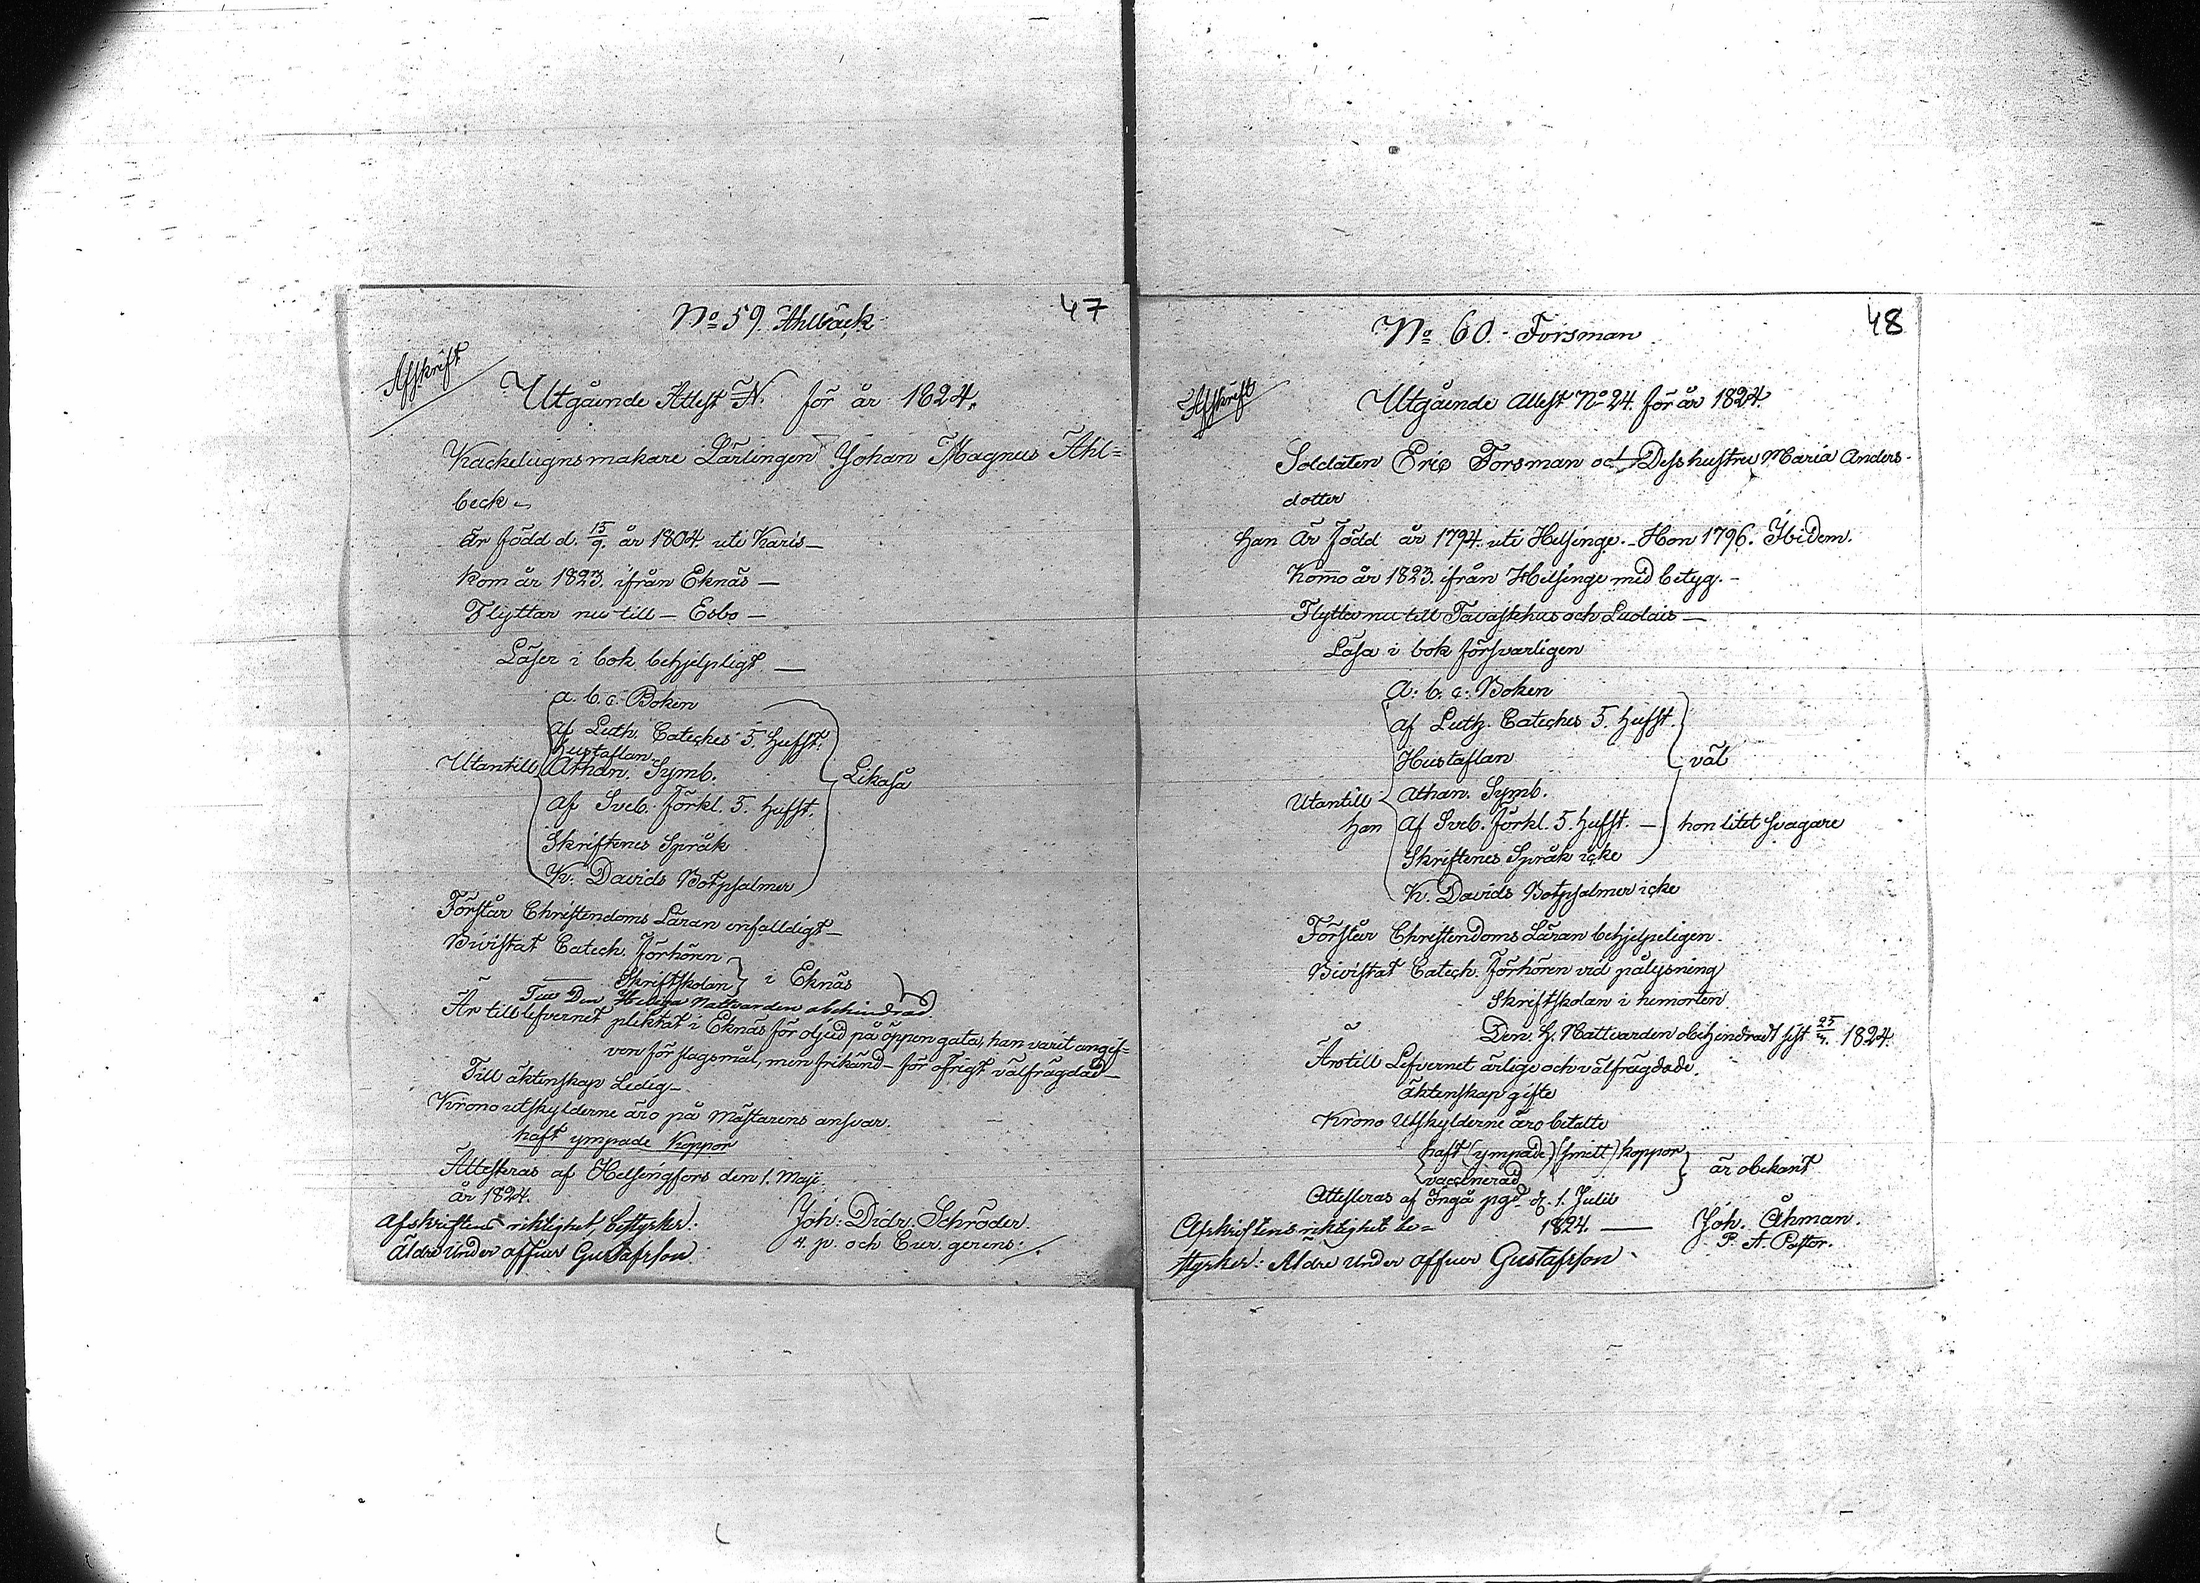 47
No 59. Ahlbäck
Afskrift
Utgående Attest N. för år 1824.
Kackelugnsmakare Lärlingen Johan Magnus Ahl=
beck
är född d. 15/9. år 1804. uti Karis
Kom år 1823. ifrån Eknäs
Flyttar nu till Esbo
Läser i bok behjelpligt
Utantill
a. b. c. Boken
af Luth. Cateches 5. Hufst.
Hustaflan
Athan. Symb.
af Sveb. Förkl. 5. Hufst.
Skriftenes Språk
K. Davids Botpsalmer
Likaså
Förstår Christendoms Läran enfalldigt
Bivistat Catech. Förhören
Skriftskolan
i Eknäs
Den Heliga Nattvarden obehindrad
Är till lefvernet pliktat i Eknäs för oljud på öppen gata, han varit angif=
ven för slagsmål, men frikänd för öfrigt välfrägdad
Till äktenskap Ledig
Krono utskylderne äro på Mästarens ansvar.
haft ympade Koppor
Attesteras af Helsingfors den 1. Maji
år 1824.
Joh: Didr. Schröder.
v. p. och Cur. gerens.
Afskriftens riktighet bestyrker:
Äldre Under officer Gustafsson.
48
No 60. Forsman
Afskrift
Utgående Attest No 24. för år 1824.
Soldaten Eric Forsman och Dess hustru Maria Anders-
dotter
han Är Född år 1794. uti Helsinge. Hon 1796. Ibidem.
Kommo år 1823. ifrån Helsinge med betyg.
Flytta nu till Tavastehus och Luolais
Läsa i bok försvarligen
Utantill
han
A. b. c. Boken
af Luth. Cateches 5. hufst.
Hustaflan
Athan. Symb.
Af Sveb. förkl. 5. hufst.
Skriftenes Språk icke
K. Davids Botpsalmer icke
väl
hon litet svagare
Förstår Christendoms Läran behjelpeligen.
Bivistat Catech. Förhören vid pålysning
Skriftskolan i hemorten
Den H. Nattvarden obehindradt sist 25/4. 1824.
Äro till Lefvernet ärlige och välfrägdade.
äktenskap gifte
Krono Utskylderne äro betalte
haft (ympade) (smitt) koppor
vaccinerad
är obekant
Attesteras af Ingå pgd. d. 1. Julii
1824.
Joh. Åhman.
P. A. Pastor.
Afskriftens riktighet be=
styrker: Äldre Under officer Gustafsson